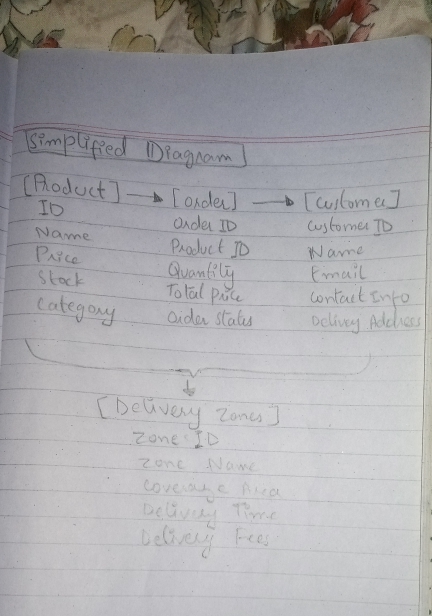 Simplified Diagram
[Product] → [order] → [customer]
ID
Name
Price
Stock
Category
Order ID
Product ID
Quantity
Total price
Order status
Customer ID
Name
Email
Contact Info
Delivery Address
[Delivery Zones]
Zone ID
Zone Name
Coverage Area
Delivery Time
Delivery Fees